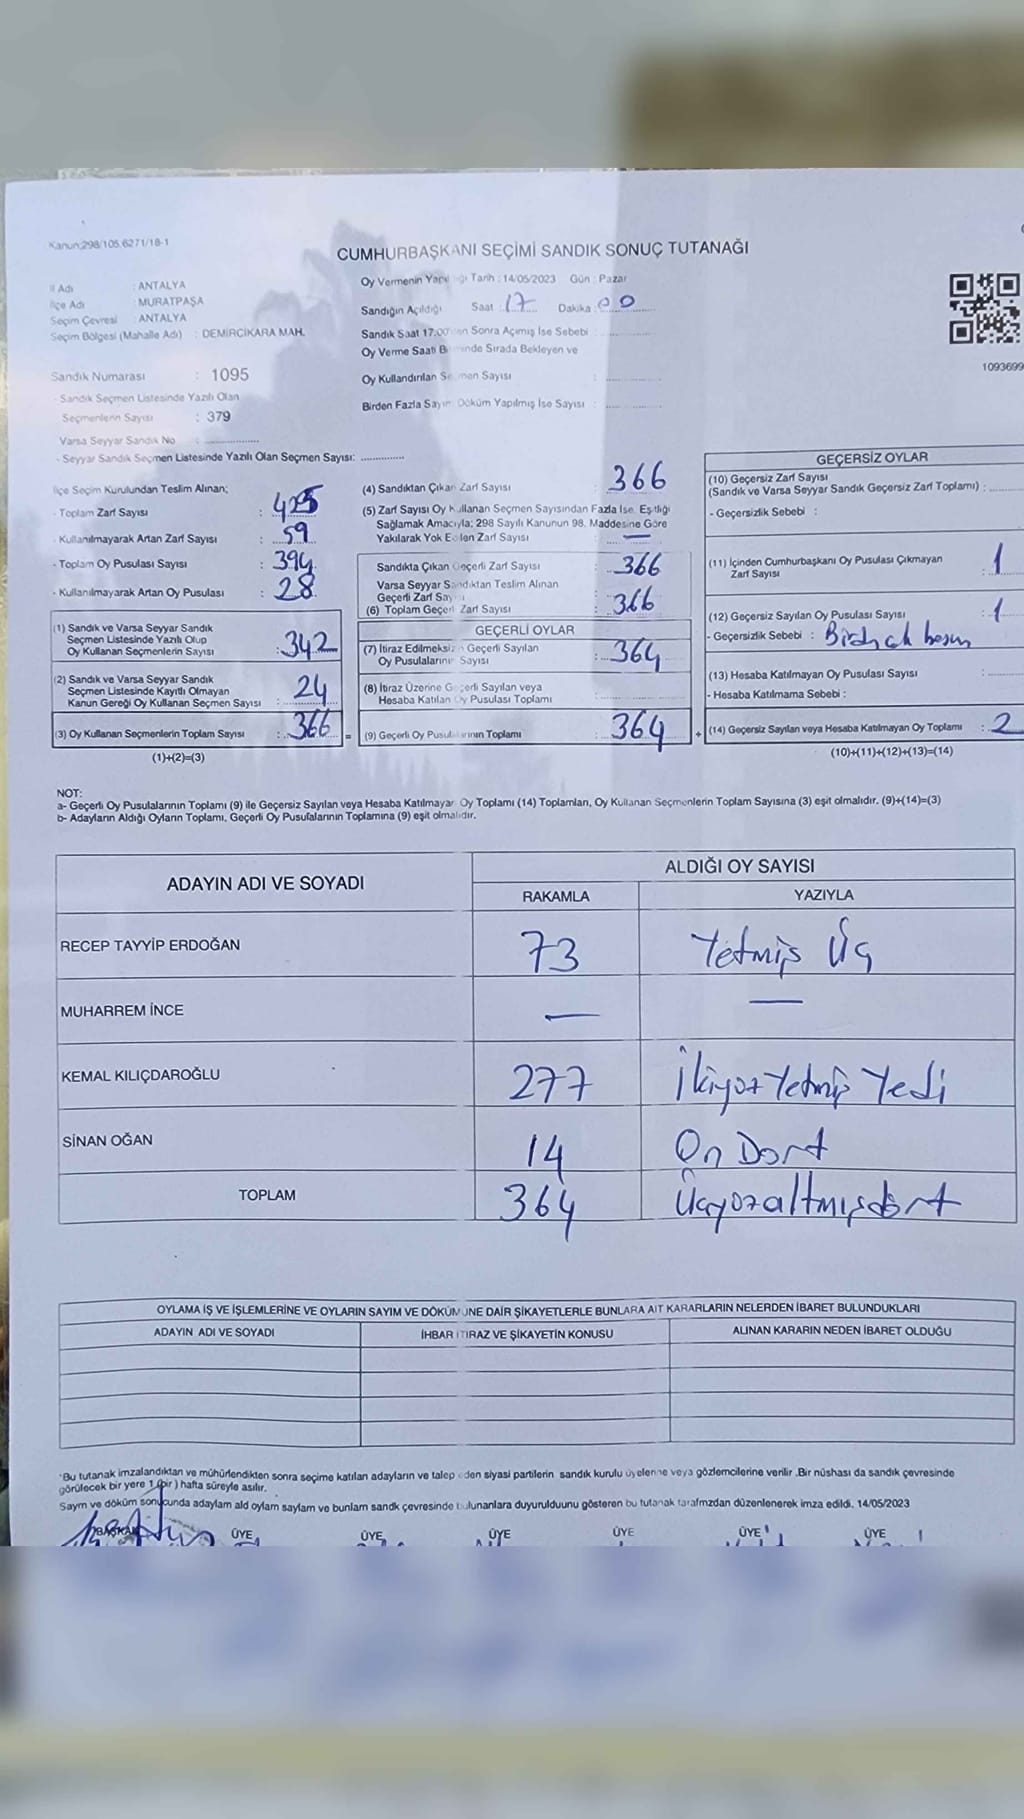 Kanun:298/105.6271/18-1
CUMHURBAŞKANI SEÇİMİ SANDIK SONUÇ TUTANAĞI
İl Adı : ANTALYA
İlçe Adı : MURATPAŞA
Seçim Çevresi : ANTALYA
Seçim Bölgesi (Mahalle Adı) : DEMİRCİKARA MAH.
Sandık Numarası : 1095
- Sandık Seçmen Listesinde Yazılı Olan
Seçmenlerin Sayısı : 379
Varsa Seyyar Sandık No :
- Seyyar Sandık Seçmen Listesinde Yazılı Olan Seçmen Sayısı:
Oy Vermenin Tarih : 14/05/2023 Gün : Pazar
Sandığın Açıldığı Saat : 17 Dakika 00
Sandık Saat 17.00 Sonra Açımış İse Sebebi :
Oy Verme Saati Sırada Bekleyen ve
Oy Kullandırılan Sayısı :
Birden Fazla Sayım Döküm Yapılmış İse Sayısı :
1093699
İlçe Seçim Kurulundan Teslim Alınan;
- Toplam Zarf Sayısı : 425
- Kullanılmayarak Artan Zarf Sayısı : 59
- Toplam Oy Pusulası Sayısı : 394
- Kullanılmayarak Artan Oy Pusulası : 28
(1) Sandık ve Varsa Seyyar Sandık
Seçmen Listesinde Yazılı Olup
Oy Kullanan Seçmenlerin Sayısı : 342
(2) Sandık ve Varsa Seyyar Sandık
Seçmen Listesinde Kayıtlı Olmayan
Kanun Gereği Oy Kullanan Seçmen Sayısı : 24
(3) Oy Kullanan Seçmenlerin Toplam Sayısı : 366
(1)+(2)=(3)
(4) Sandıktan Çıkan Zarf Sayısı : 366
(5) Zarf Sayısı Oy Kullanan Seçmen Sayısından Fazla İse, Eşitliği
Sağlamak Amacıyla; 298 Sayılı Kanunun 98. Maddesine Göre
Yakılarak Yok Edilen Zarf Sayısı : —
Sandıkta Çıkan Geçerli Zarf Sayısı : 366
Varsa Seyyar Sandıktan Teslim Alınan
Geçerli Zarf
(6) Toplam Geçerli Zarf Sayısı : 366
=
GEÇERLİ OYLAR
(7) İtiraz Edilmeksizin Geçerli Sayılan
Oy Pusulalarının Sayısı : 364
(8) İtiraz Üzerine Geçerli Sayılan veya
Hesaba Katılan Oy Pusulası Toplamı
(9) Geçerli Oy Pusulalarının Toplamı : 364
+
GEÇERSİZ OYLAR
(10) Geçersiz Zarf Sayısı
(Sandık ve Varsa Seyyar Sandık Geçersiz Zarf Toplamı) :
- Geçersizlik Sebebi :
(11) İçinden Cumhurbaşkanı Oy Pusulası Çıkmayan
Zarf Sayısı : 1
(12) Geçersiz Sayılan Oy Pusulası Sayısı : 1
- Geçersizlik Sebebi :
(13) Hesaba Katılmayan Oy Pusulası Sayısı :
- Hesaba Katılmama Sebebi :
(14) Geçersiz Sayılan veya Hesaba Katılmayan Oy Toplamı : 2
(10)+(11)+(12)+(13)=(14)
NOT:
a- Geçerli Oy Pusulalarının Toplamı (9) ile Geçersiz Sayılan veya Hesaba Katılmayan Oy Toplamı (14) Toplamları, Oy Kullanan Seçmenlerin Toplam Sayısına (3) eşit olmalıdır. (9)+(14)=(3)
b- Adayların Aldığı Oyların Toplamı, Geçerli Oy Pusulalarının Toplamına (9) eşit olmalıdır.
ADAYIN ADI VE SOYADI ALDIĞI OY SAYISI
RAKAMLA YAZIYLA
RECEP TAYYİP ERDOĞAN 73 Yetmiş Üç
MUHARREM İNCE — —
KEMAL KILIÇDAROĞLU 277 İkiyüz Yetmiş Yedi
SİNAN OĞAN 14 On Dört
TOPLAM 364 Üçyüzaltmışdört
OYLAMA İŞ VE İŞLEMLERİNE VE OYLARIN SAYIM VE DÖKÜMÜNE DAİR ŞİKAYETLERLE BUNLARA AİT KARARLARIN NELERDEN İBARET BULUNDUKLARI
ADAYIN ADI VE SOYADI İHBAR İTİRAZ VE ŞİKAYETİN KONUSU ALINAN KARARIN NEDEN İBARET OLDUĞU
*Bu tutanak imzalandıktan ve mühürlendikten sonra seçime katılan adayların ve talep eden siyasi partilerin sandık kurulu üyelerine veya gözlemcilerine verilir .Bir nüshası da sandık çevresinde
görülecek bir yere 1 (bir ) hafta süreyle asılır.
Sayım ve döküm sonucunda adaylam ald oylam saylam ve bunlam sandk çevresinde bulunanlara duyurulduunu gösteren bu tutanak tarafmzdan düzenlenerek imza edildi. 14/05/2023
BAŞKAN ÜYE ÜYE ÜYE ÜYE ÜYE ÜYE